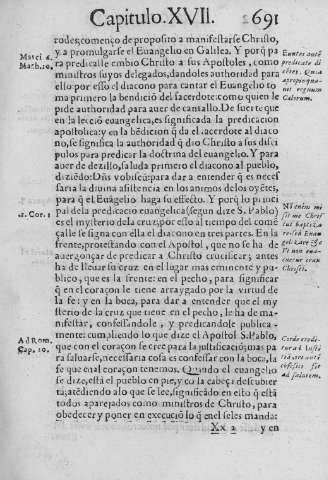 Capitulo. XVII. 691
rodes; començo de proposito a manifestarse Christo,
y a promulgarse el Euangelio en Galilea. Y porq̃ pa
ra predicalle embio Christo a sus Apostoles, como
ministros suyos delegados, dandoles authoridad para
ello por esso el diacono para cantar el Euangelio to
ma primero la bendició del sacerdote: como quien le
pide authoridad para auer de cantallo. De suerte que
en la leció euangelica, es significada la predicacion
apostolica: y en la bẽdicion q̃ da el sacerdote al diaco
no, se significa la authoridad q̃ dio Christo a sus disci
pulos para predicar la doctrina del euangelio. Y para
auer de dezillo, saluda primero el diacono al pueblo,
diziẽdo: Dñs vobiscũ: para dar a entender q̃ es neces
saria la diuina asistencia en los animos de los oyẽtes,
para q̃ el Euãgelio haga su effecto. Y porq̃ lo princi
pal de la predicacio euangelica (segun dize S. Pablo)
es el mysterio de la cruz, por esso al tiempo del comẽ
çalle se signa con ella el diacono en tres partes. En la
frente, protestando con el Apostol, que no se ha de
auergonçar de predicar a Christo crucificar; antes
ha de lleuar su cruz en el lugar mas eminente y pu-
blico, que es la frente: en el pecho, para significar
q̃ en el coraçon le tiene arraygado por la virtud de
la fe: y en la boca, para dar a entender que el my
sterio de la cruz que tiene en el pecho, le ha de ma-
nifestar, confessandole, y predicandole publica-
mente: cumpliendo lo que dize el Apostol S. Pablo,
que con el coraçon se cree para la justificació; mas pa
ra saluarse, necessaria cosa es confessar con la boca, la
fe que en al coraçon tenemos. Quando el euangelio
se dize, está el pueblo en pie, y cõ la cabeça descubier
ta; atẽdiendo a lo que se lee, significãdo en esto q̃ está
todos aparejados como ministros de Christo, para
obedecer y poner en execució lo q̃ en el se les manda:
Xx 2 y en
Marci 1.
Math. 10.
Euntes autẽ
predicate di
cẽtes, Quia
apropinqua-
uit regnum
Cælorum.
1. Cor. 1
Nõ enim mi
sit me Chris
tus baptiza
re: sed Euan
gelizare &c
Vt non eua-
cuetur crux
Christi.
Ad Rom.
Cap. 10.
Corde credi
tur ad iusti
tiã ore autẽ
cõfessio fit
ad salutem.